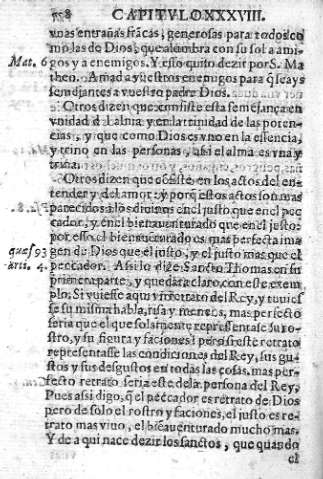 558 CAPITVLO XXXVIII.
vnas entrañas frācas, generosas para todos co
mo las de Dios, que alombra con su sol a ami-
Mat. 6 gos y a enemigos. Y esso quiso dezir por S. Ma
theo. Amad a vuestros enemigos para q̃ seays
semejantes a vuestro padre Dios.
Otros dizen que consiste esta semejança en
vnidad d'l alma y en la trinidad de las poten-
cias, y que como Dios es vno en la essencia,
y trino en las personas, assi el alma es vna y
trina.
Otros dizen que cōsiste en los actos del en-
tender y del amor: y porq̃ estos actos son mas
parecidos a los diuinos en el justo, que en el pec
cador, y en el bienauenturado que en el justo:
por esso el bienauenturado es mas perfecta ima
quæs. 93 gen de Dios que el justo, y el justo mas que el
arti. 4. peccador. Assi lo dize Sancto Thomas en su
primera parte, y quedara claro, con este exem
plo. Si vuiesse aqui vn retrato del Rey, y tuuies
se su misma habla, risa y meneos, mas perfecto
seria que el que solamente representase su ro-
stro, y su figura y faciones: pero si este retrato
representasse las condiciones del Rey, sus gu-
stos y sus desgustos en todas las cosas, mas per-
fecto retrato seria este de la persona del Rey,
Pues assi digo, q̃ el peccador es retrato de Dios
pero de solo el rostro y faciones, el justo es re-
trato mas viuo, el biēauenturado mucho mas.
Y de aqui nace dezir los sanctos, que quando
el